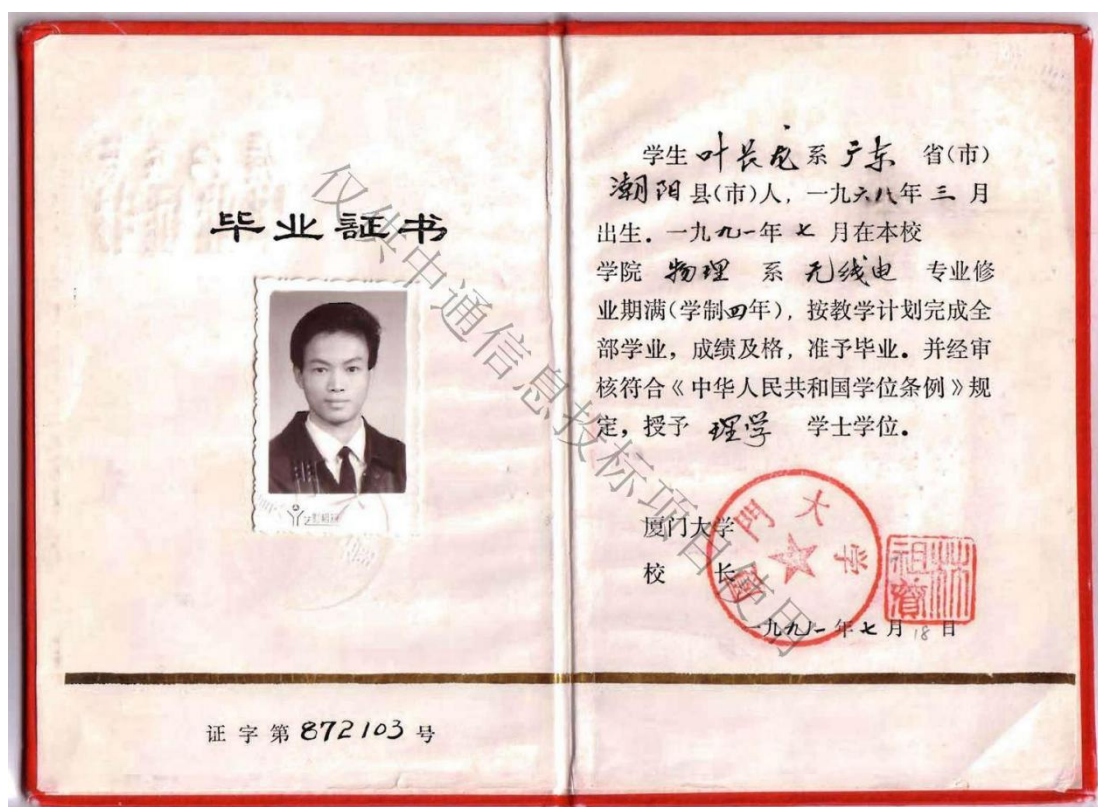 毕业証书
证字第872103号
学生叶长龙系广东 省(市)
潮阳县(市)人，一九六八年三月
出生．一九九一年七月在本校
学院 物理 系 无线电 专业修
业期满(学制四年)，按教学计划完成全
部学业，成绩及格，准予毕业．并经审
核符合《中华人民共和国学位条例》规
定，授予 理学 学士学位．
厦门大学
校 长
厦門大学
林祖賡
一九九一年七月18日
仅供中通信息投标项目使用